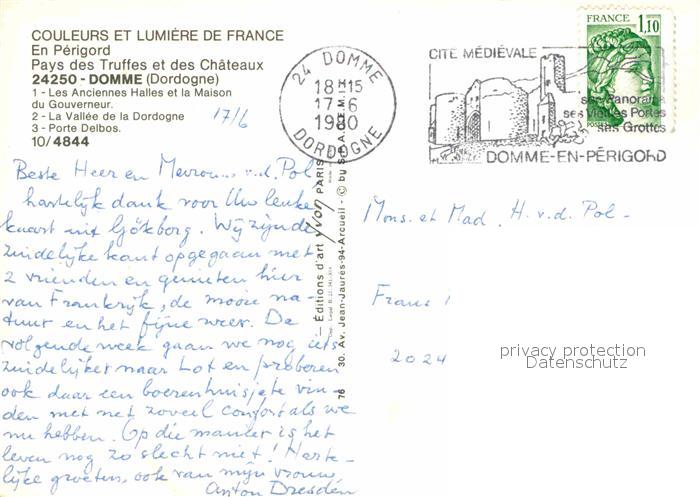 COULEURS ET LUMIÈRE DE FRANCE
En Périgord
Pays des Truffes et des Châteaux
24250 - DOMME (Dordogne)
1 - Les Anciennes Halles et la Maison
du Gouverneur.
2 - La Vallée de la Dordogne
3 - Porte Delbos.
10/4844
17/6
24 DOMME
18H15
17-6
1980
DORDOGNE
CITÉ MÉDIÉVALE
son Panorama
ses Vieilles Portes
ses Grottes
DOMME-EN-PÉRIGORD
FRANCE
1,10
POSTES
Beste Heer en Mevrouw v.d. Pol
hartelijk dank voor Uw leuke
kaart uit Gökborg. Wij zijn de
zuidelijke kant opgegaan met
2 vrienden en genieten hier
van Frankrijk, de mooie na-
tuur en het fijne weer. De
volgende week gaan we nog iets
zuidelijker naar Lot en proberen
ook daar een boerenhuisje te vin-
den met net zoveel comfort als we
nu hebben. Op die manier is het
leven nog zo slecht niet! Harte-
lijke groeten, ook van mijn vrouw,
Anton Dresden
— Éditions d'art yvon PARIS
30, Av. Jean-Jaurès-94-Arcueil - © by
76
Mons. et Mad. H. v.d. Pol -
2024
privacy protection
Datenschutz